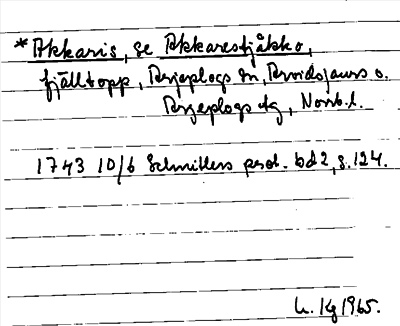 *Akkaris, se Akkarestjåkko,
fjälltopp, Arjeplogs sn, Arvidsjaurs o.
Arjeplogs tg, Norrb.l.
1743 10/6 Schnitlers prot. bd 2, s. 124.
1965.